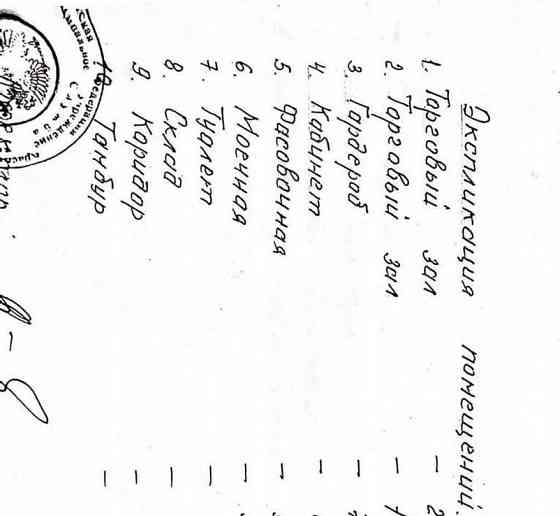 Экспликация помещений.
1. Торговый зал —
2. Торговый зал —
3. Гардероб —
4. Кабинет —
5. Фасовочная —
6. Моечная —
7. Туалет —
8. Склад —
9. Коридор —
Тамбур —